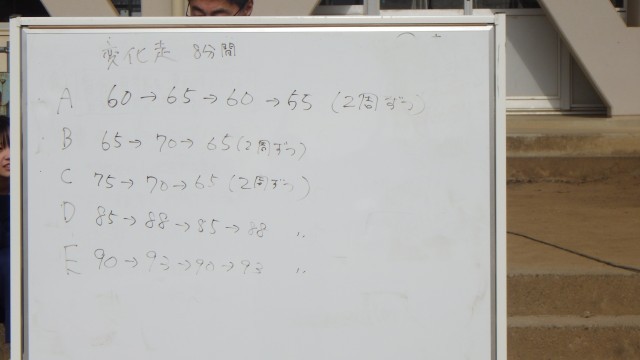 変化走 8分間
A 60→65→60→55 (2周ずつ)
B 65→70→65(2周ずつ)
C 75→70→65(2周ずつ)
D 85→88→85→88 〃
E 90→93→90→93 〃